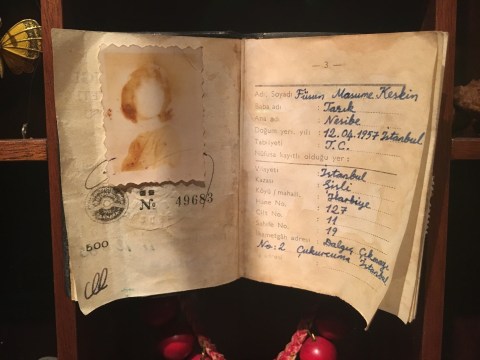 № 49683
500
— 3 —
Adı, Soyadı : Füsun Masume Keskin
Baba adı : Tarık
Ana adı : Nesibe
Doğum yeri, yılı : 12.04.1957 İstanbul
Tabiiyeti : T.C.
Nüfusa kayıtlı olduğu yer :
Vilâyeti : İstanbul
Kazası : Şişli
Köyü / mahall. : Harbiye
Hane No. : 127
Cilt No. : 11
Sahife No. : 19
İkametgâh adresi : Dalgıç Çıkmazı
No: 2 Çukurcuma İstanbul